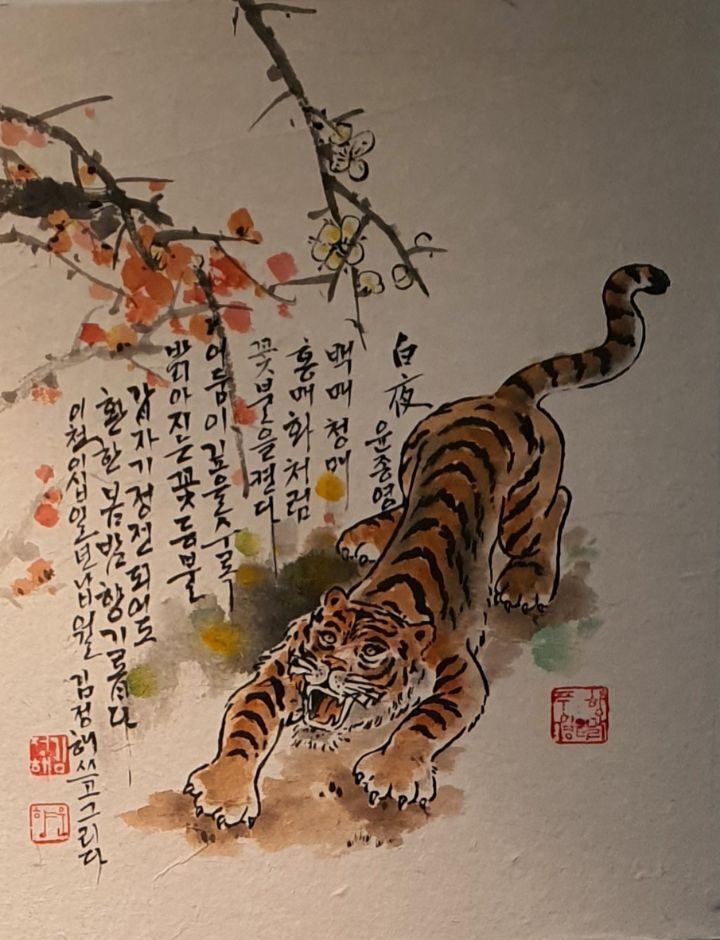 白夜
윤종영
백매 청매
홍매화처럼
꽃불을 켠다
어둠이 깊을수록
밝아지는 꽃등불
갑자기 정전되어도
환한 봄밤 향기롭다
이천이십일년 납월 김정해 쓰고 그리다